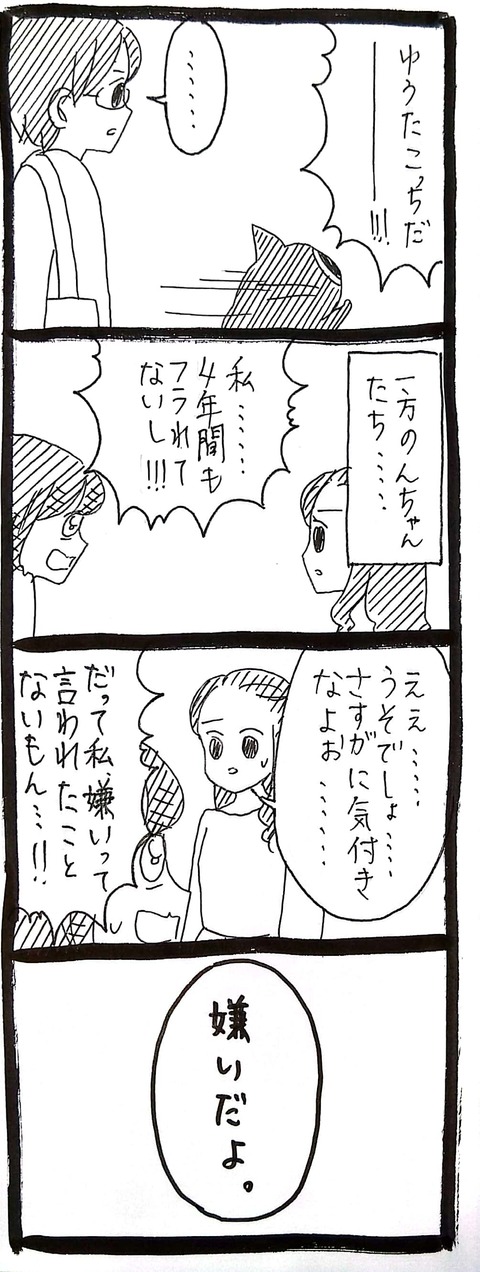 ゆうたこっちだ
───!!!
……
一方のんちゃん
たち……
私……
4年間も
フラれて
ないし!!!
ええ……
うそでしょ……
さすがに気付き
なよお……
だって私、嫌いって
言われたこと
ないもん…!!
嫌いだよ。